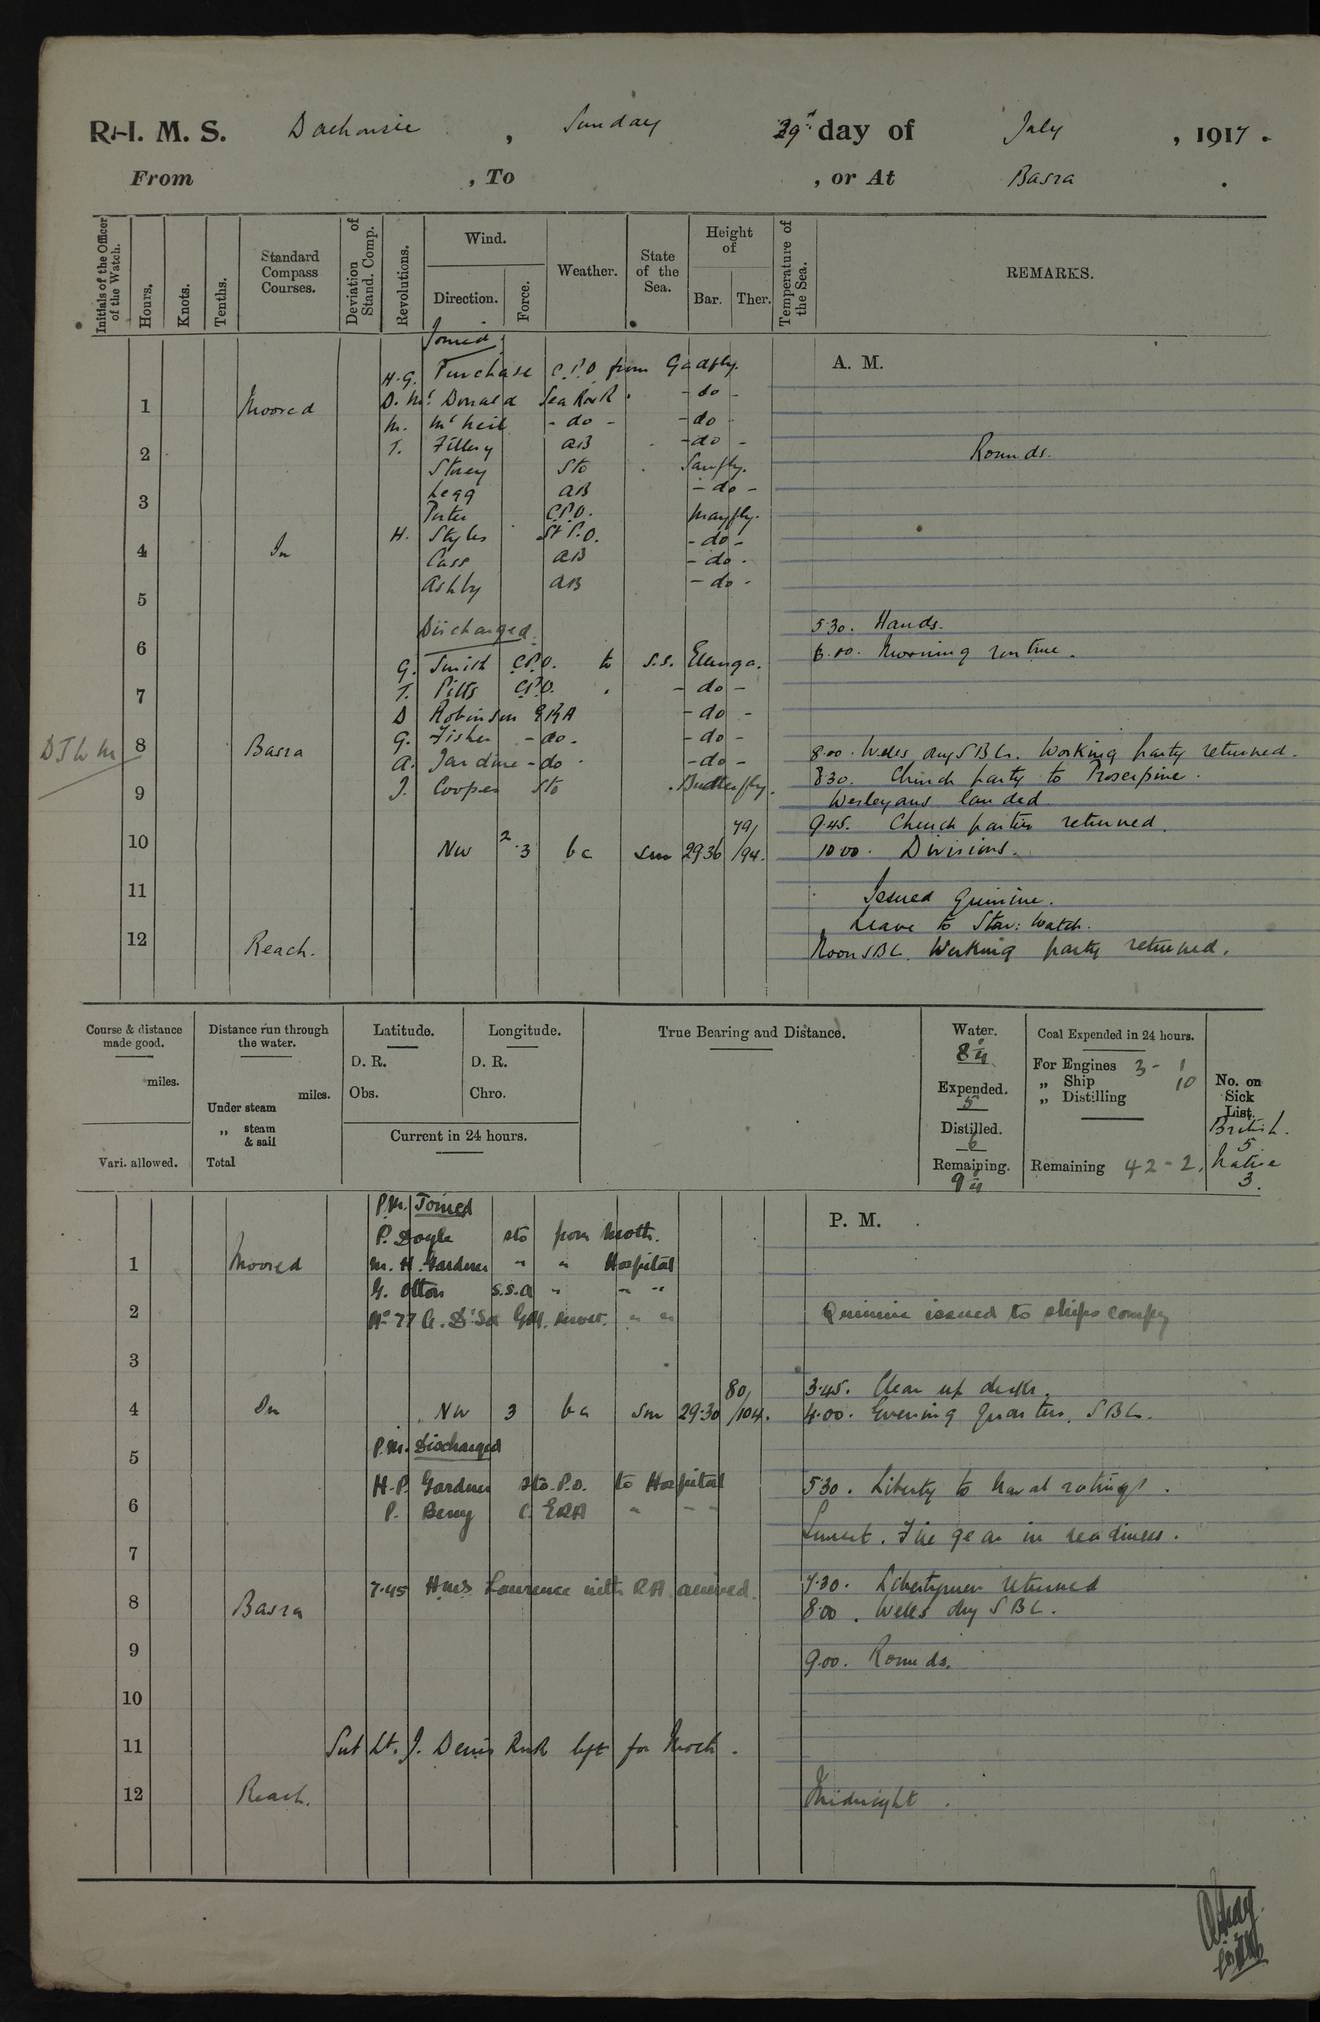 R.I.M.S. Dalhousie, Sunday 29th day of July, 1917.
From , To , or At Basra.
Initials of the Officer of the Watch.
Hours.
Knots.
Tenths.
Standard Compass Courses.
Deviation of Stand. Comp.
Revolutions.
Wind.
Direction.
Force.
Weather.
State of the Sea.
Height of
Bar.
Ther.
Temperature of the Sea.
REMARKS.
Joined
A. M.
H.G. Purchase C.P.O from Gadfly.
D. McDonald Sea RNR - do -
1 Moored
M. McNeil - do - - do -
T. Fillery AB - do -
2 Rounds.
Storey Sto Sawfly.
Legg AB - do -
3
Porter C.P.O. Mayfly.
H. Styles St P.O. - do -
4 In
Cass AB - do -
Ashby AB - do -
5
Discharged
5.30. Hands.
6 6.00. Morning routine.
G. Smith C.P.O. to S.S. Ellenga.
T. Pitts C.P.O. - do -
7
D Robinson ERA - do -
G. Fisher - do - - do -
8 Basra 8.00. Wells dry SBL. Working party returned.
A. Jardine - do - - do -
8.30. Church party to Proserpine.
J. Cooper Sto Butterfly.
9 Wesleyans landed
9.45. Church parties returned.
10 NW 2.3 bc sm 29.36 79/94. 10.00. Divisions.
11 Issued Quinine.
Leave to Star: Watch.
12 Reach. Noon SBL. Working party returned.
Course & distance made good.
miles.
Vari. allowed.
Distance run through the water.
miles.
Under steam
„ steam & sail
Total
Latitude.
D. R.
Obs.
Longitude.
D. R.
Chro.
Current in 24 hours.
True Bearing and Distance.
Water.
Expended.
5
Distilled.
6
Remaining.
Coal Expended in 24 hours.
For Engines 3 - 1
„ Ship 10
„ Distilling
Remaining 42 - 2.
No. on Sick List.
British.
5
Native
3.
P.M. Joined
P. M.
P. Doyle Sto from Moth.
1 Moored
M. H. Gardner " " Hospital
G. Otton S.S.A " " "
2 Quinine issued to ships compy
3
3.45. Clear up decks.
4 In NW 3 bc sm 29.30 80/104. 4.00. Evening Quarters. SBL.
P.M. Discharged
5
H.P. Gardner Sto. P.O. to Hospital
5.30. Liberty to Naval ratings.
6
P. Berry C. ERA " " "
Sunset. Fire gear in readiness.
7
7.45 HMS Lawrence with RA arrived.
7.30. Libertymen returned
8 Basra 8.00. Wells dry SBL.
9 9.00. Rounds.
10
11 Sub Lt. J. Denis RNR left for Moth.
12 Reach. Midnight.